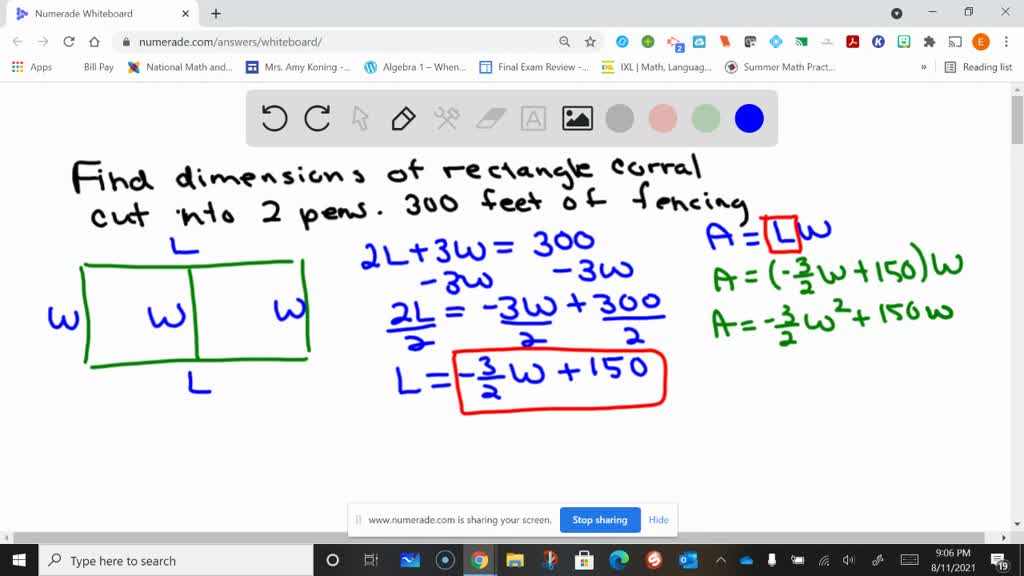 Numerade Whiteboard
numerade.com/answers/whiteboard/
Apps Bill Pay National Math and... Mrs. Amy Koning -... Algebra 1 – When... Final Exam Review -... IXL | Math, Languag... Summer Math Pract... » Reading list
Find dimensions of rectangle corral
cut into 2 pens. 300 feet of fencing
L
W W W
L
2L+3W = 300
-3W -3W
2L/2 = -3W/2 + 300/2
L = -3/2 W + 150
A = LW
A = (-3/2 W + 150)W
A = -3/2 W² + 150W
www.numerade.com is sharing your screen. Stop sharing Hide
Type here to search
9:06 PM
8/11/2021
19